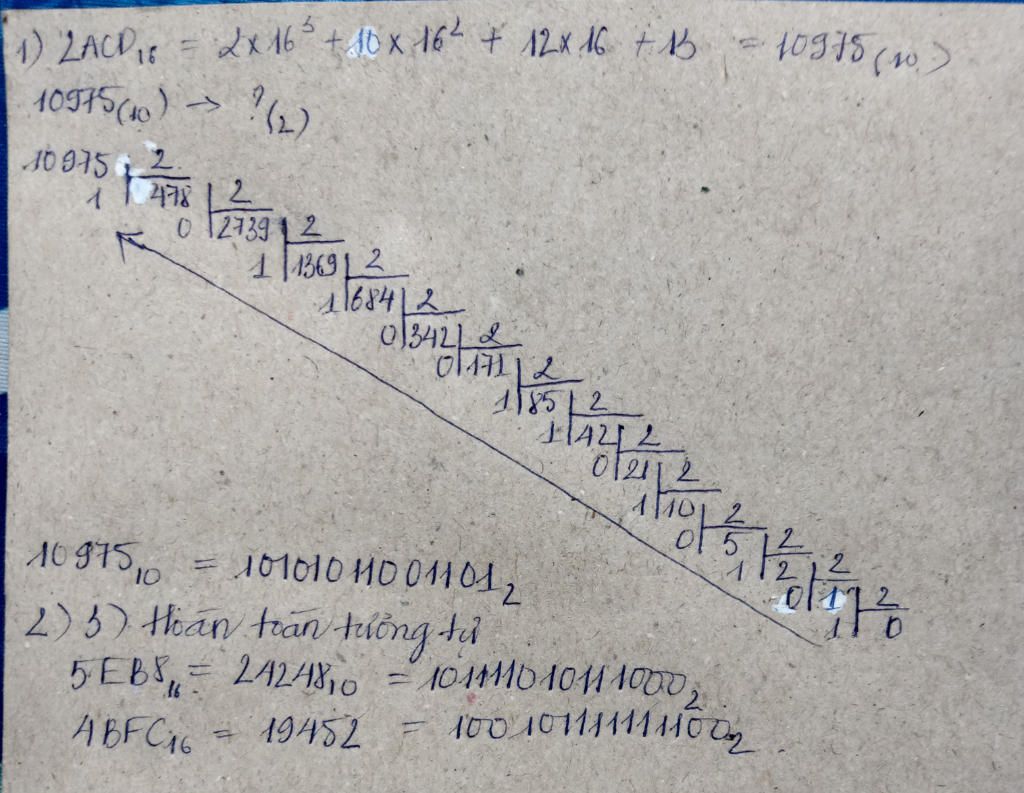 1) 2ACD₁₆ = 2×16³ + 10 × 16² + 12×16 + 13 = 10975₍₁₀₎
10975₍₁₀₎ → ?₍₂₎
10975 2
1 478 2
0 2739 2
1 1369 2
1 684 2
0 342 2
0 171 2
1 85 2
1 42 2
0 21 2
1 10 2
0 5 2
1 2 2
0 1 2
1 0
10975₁₀ = 10101011001101₂
2) 3) Hoàn toàn tương tự
5EB8₁₆ = 24248₁₀ = 101111010111000₂
4BFC₁₆ = 19452 = 100101111111100₂